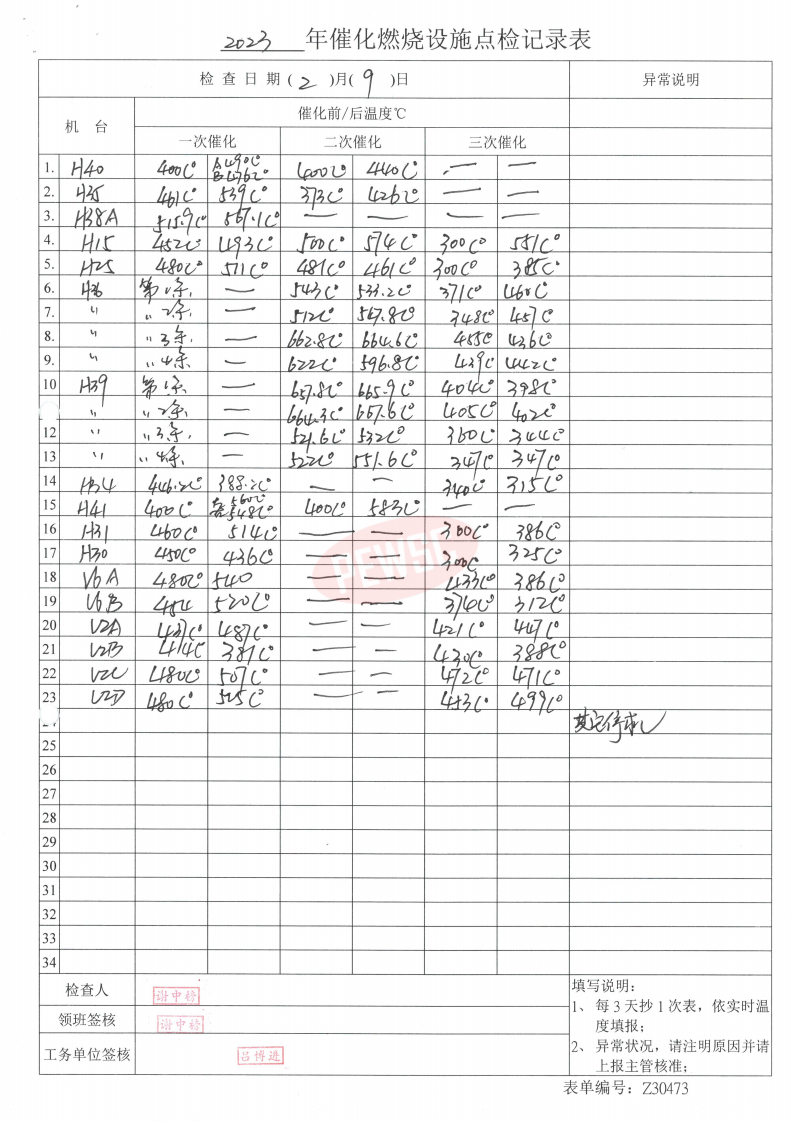 2023 年催化燃烧设施点检记录表
检 查 日 期 ( 2 )月( 9 )日 异常说明
机 台 催化前/后温度℃
一次催化 二次催化 三次催化
1. H40 400C° A490C° B476C° 400C° 440C° — —
2. H35 461C° 539C° 373C° 426C° — —
3. H38A 515.9C° 567.1C° — — — —
4. H15 452C° 493C° 500C° 574C° 300C° 551C°
5. H25 480C° 511C° 481C° 461C° 300C° 385C°
6. H36 第1条 — 543C° 533.2C° 371C° 460C°
7. 〃 〃2条 — 512C° 567.8C° 348C° 457C°
8. 〃 〃3条 — 662.8C° 664.6C° 455C° 436C°
9. 〃 〃4条 — 622C° 596.8C° 439C° 442C°
10 H39 第1条 — 657.8C° 665.9C° 404C° 398C°
〃 〃2条 — 664.3C° 667.6C° 405C° 402C°
12 〃 〃3条 — 521.6C° 532C° 360C° 344C°
13 〃 〃4条 — 522C° 551.6C° 347C° 347C°
14 H34 446.2C° 388.2C° — — 340C° 315C°
15 H41 400C° 560C° 548C° 400C° 583C° — —
16 H31 460C° 514C° — — 300C° 386C°
17 H30 450C° 436C° — — 300C° 325C°
PEWSC
18 V6A 480C° 540 — — 433C° 386C°
19 V6B 484 520C° — — 374C° 312C°
20 V2A 437C° 487C° — — 421C° 447C°
21 V2B 414C 381C° — — 430C° 388C°
22 V2C 480C° 507C° — — 472C° 471C°
23 V2D 480C° 525C° — — 453C° 499C°
其它停机
25
26
27
28
29
30
31
32
33
34
检查人 谢中榜
领班签核 谢中榜
工务单位签核 吕博进
填写说明:
1、 每 3 天抄 1 次表，依实时温
度填报;
2、 异常状况，请注明原因并请
上报主管核准;
表单编号: Z30473